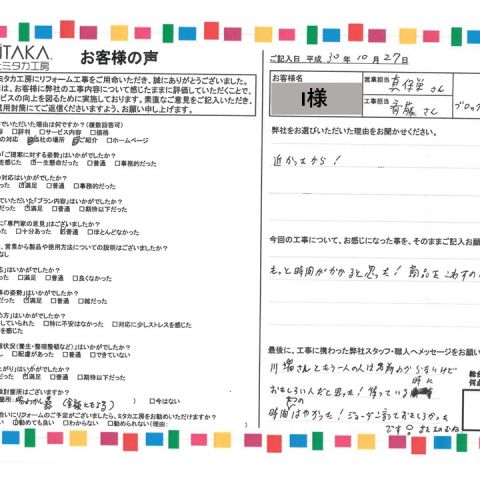 iTAKA
ミタカ工房
お客様の声
ミタカ工房にリフォーム工事をご用命いただき、誠にありがとうございました。
は、お客様に弊社の工事内容について感じたままに評価していただくことで、
ビスの向上を図るために実施しております。素直なご意見をご記入いただき、
信用封筒にてご返信くださいますよう、お願い申し上げます。
いただいた理由は何ですか？(複数回答可)
□評判 □サービス内容 □価格
の対応 当社の場所 ご紹介 □ホームページ
「ご提案に対する姿勢」はいかがでしたか？
を感じた 一生懸命だった □普通 □事務的だった
はいかがでしたか？
だった 満足 □普通 □事務的だった
ていただいた「プラン内容」はいかがでしたか？
だった 満足 □普通 □期待以下だった
に「専門家の意見」はございましたか？
った □十分あった 普通 □ほとんどなかった
、営業から製品や使用方法についての説明はございましたか？
なし
応」はいかがでしたか？
だった 満足 □普通 □良くなかった
事の姿勢」はいかがでしたか？
だった 満足 □普通 □雑だった
め方」はいかがでしたか？
していられた □特に不安はなかった □対応に少しストレスを感じた
感じた
理状況(養生・整理整頓など)」はいかがでしたか？
し □配慮があった □できていない
上がり」はいかがでしたか？
だった 満足 □普通 □期待以下だった
検討箇所はございますか？
□今はない
合いにリフォームのご予定がございましたら、ミタカ工房をお勧めいただけますか？
い 勧めても良い □わからない □勧められない(理由：
ご記入日 平成 30 年 10 月 27 日
お客様名
I様
営業担当
真保栄 さん
工事担当
斉藤 さん
ブロック
弊社をお選びいただいた理由をお聞かせください。
近かったから！
今回の工事について、お感じになった事を、そのままご記入お願
もっと時間がかかると思った！商品を
最後に、工事に携わった弊社スタッフ・職人へメッセージをお願い
川端さんともう一人の人は名前わからないけど
おもしろい人だと思った！待っている
時に
時間はやかった！
です！
総合
何点